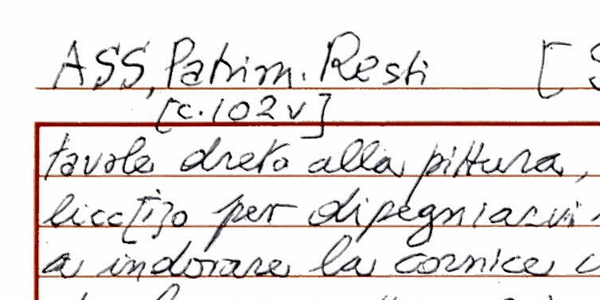 ASS, Patrim. Resti [
[c. 102 v]
tavole dreto alla pittura,
licc[i]o per dipegniarvi
a indorare la cornice